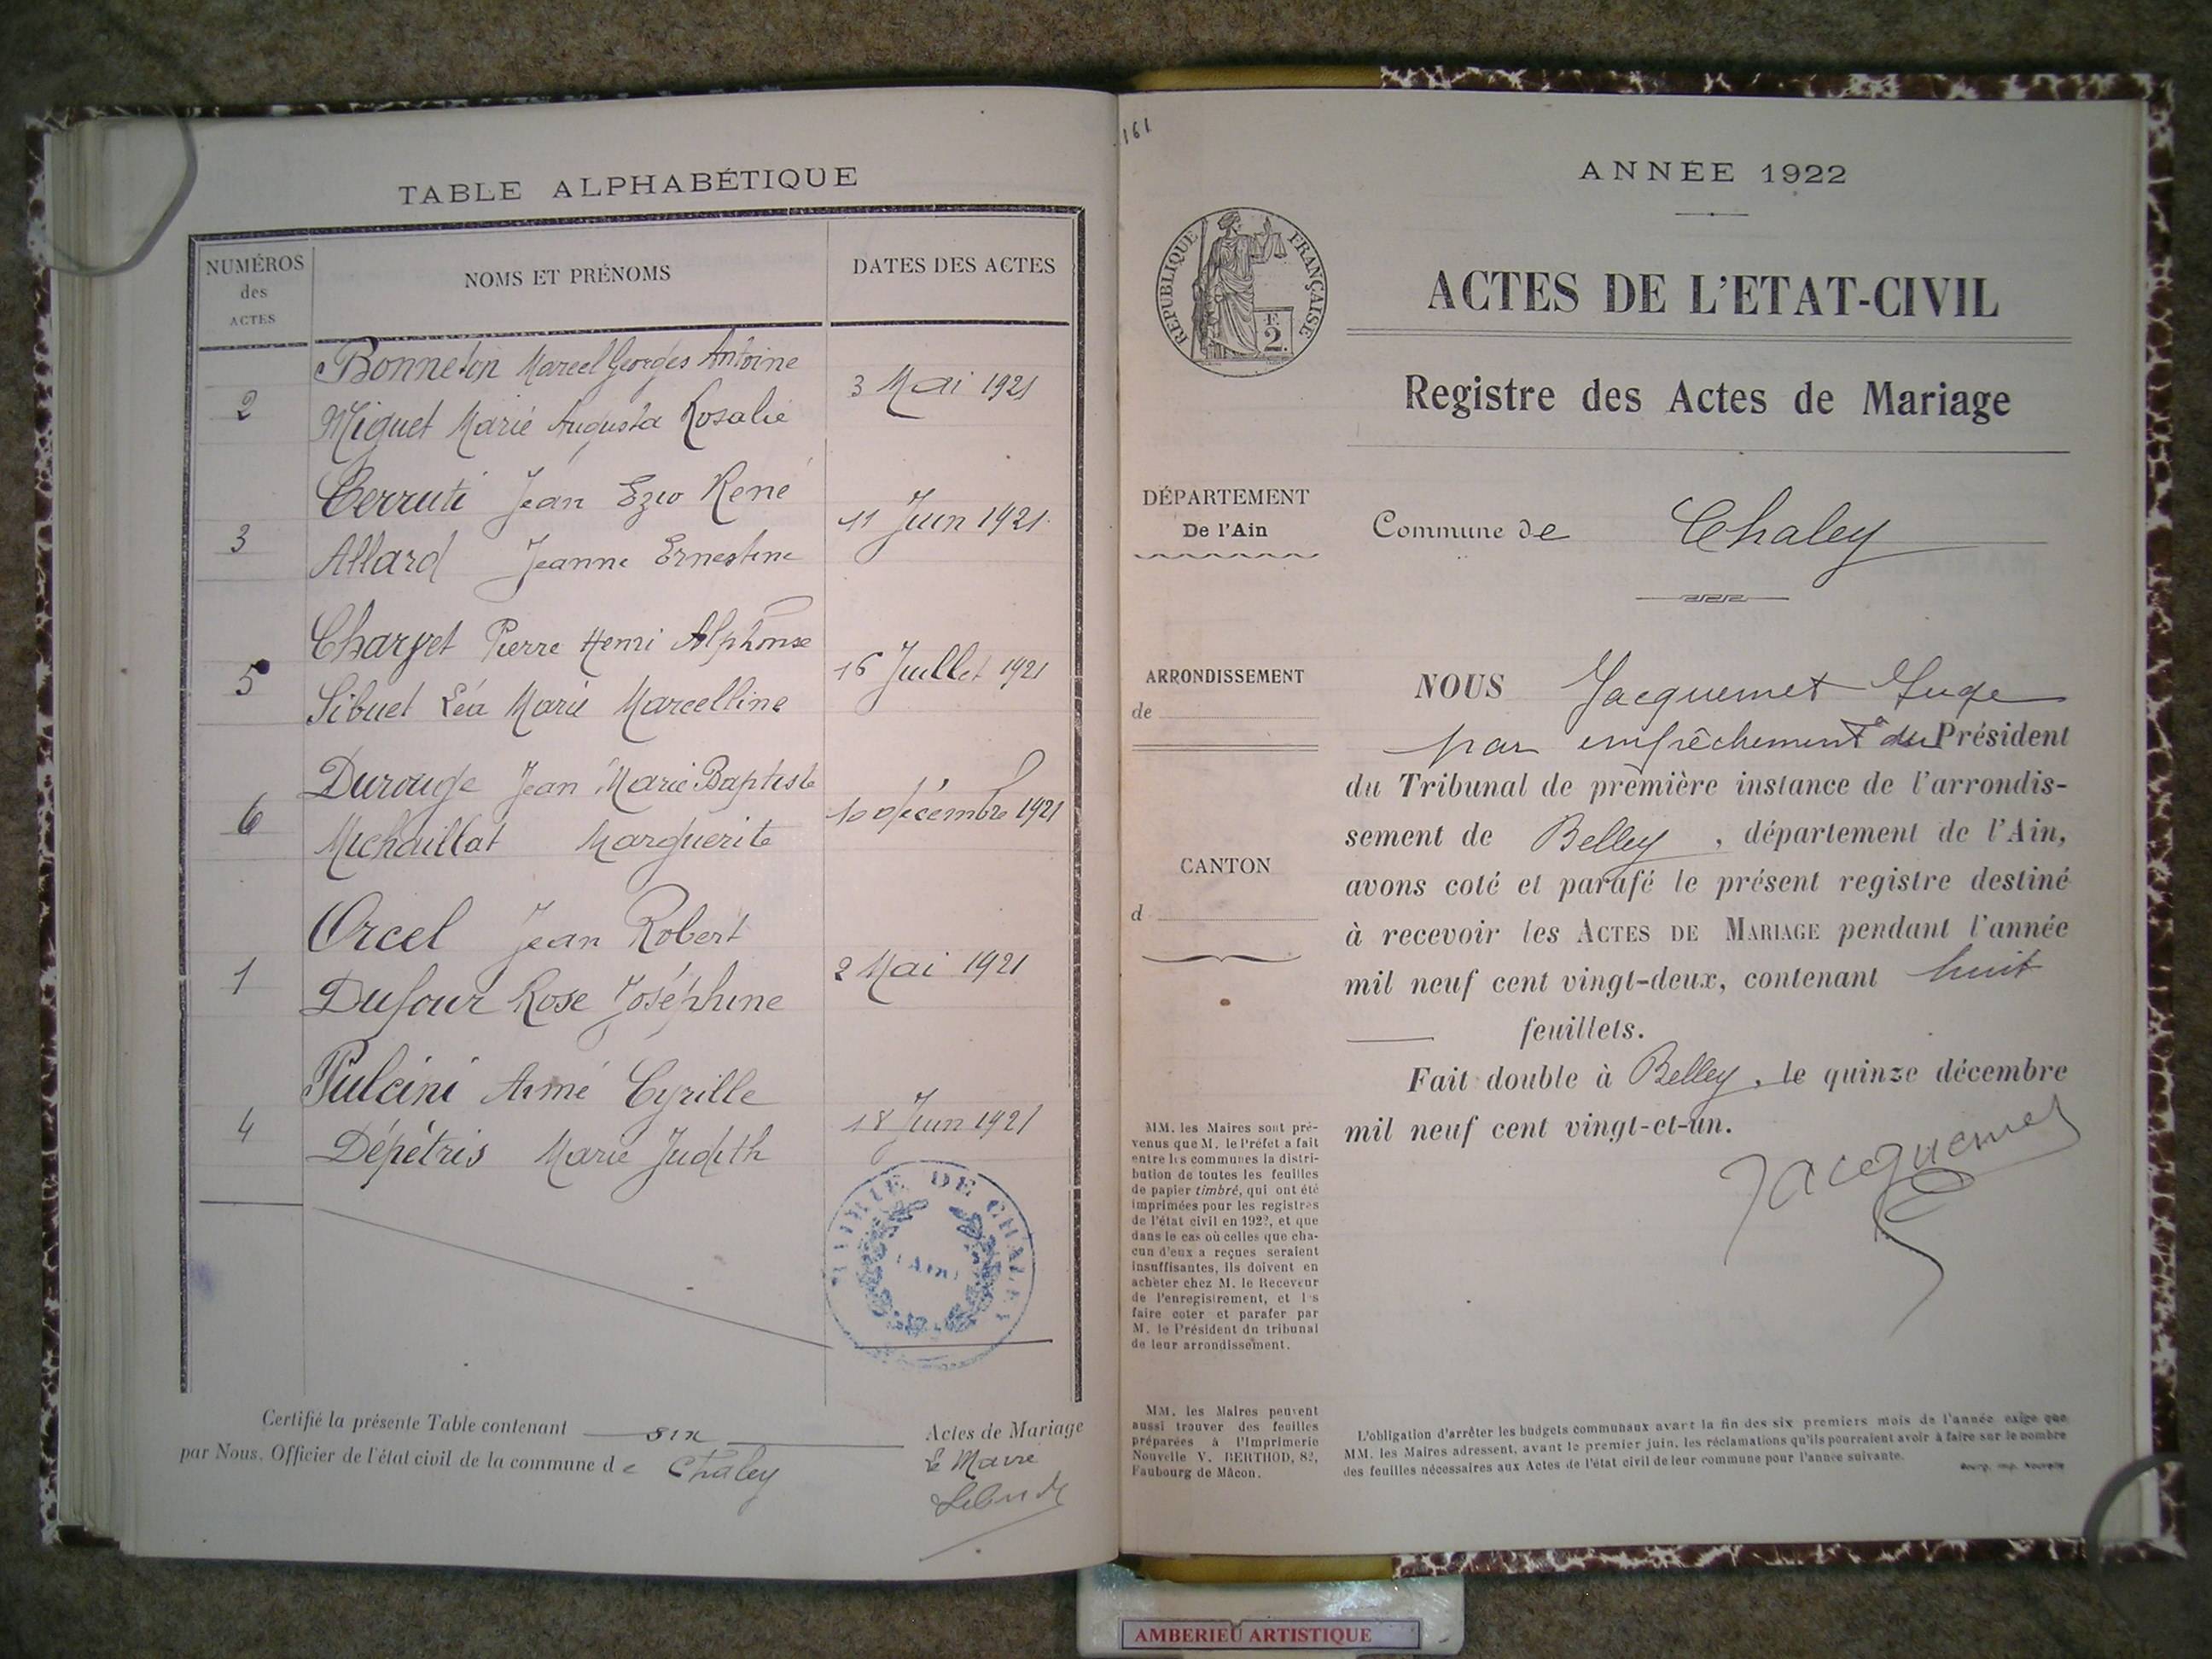 TABLE ALPHABÉTIQUE
NUMÉROS
des
ACTES
NOMS ET PRÉNOMS
DATES DES ACTES
Bonneton Marcel Georges Antoine
2
3 Mai 1921
Miguet Marie Augusta Rosalie
Cerruti Jean Ezio René
3
11 Juin 1921
Allard Jeanne Ernestine
Charvet Pierre Henri Alphonse
5
16 Juillet 1921
Sibuet Léa Marie Marcelline
Durouge Jean Marie Baptiste
6
10 décembre 1921
Michaillat Marguerite
Orcel Jean Robert
1
2 Mai 1921
Dufour Rose Joséphine
Pulcini Aimé Cyrille
4
18 Juin 1921
Dépétris Marie Judith
MAIRIE DE CHALEY
(Ain)
Certifié la présente Table contenant six Actes de Mariage
par Nous, Officier de l'état civil de la commune de Chaley
Le Maire
161
ANNÉE 1922
RÉPUBLIQUE FRANÇAISE
F.
2.
ACTES DE L'ETAT-CIVIL
Registre des Actes de Mariage
DÉPARTEMENT
De l'Ain
Commune de Chaley
ARRONDISSEMENT
de
CANTON
d
NOUS Jacquemet Juge
par empêchement du Président
du Tribunal de première instance de l'arrondis-
sement de Belley, département de l'Ain,
avons coté et parafé le présent registre destiné
à recevoir les ACTES DE MARIAGE pendant l'année
mil neuf cent vingt-deux, contenant huit
feuillets.
Fait double à Belley, le quinze décembre
mil neuf cent vingt-et-un.
Jacquemet
MM. les Maires sont pré-
venus que M. le Préfet a fait
entre les communes la distri-
bution de toutes les feuilles
de papier timbré, qui ont été
imprimées pour les registres
de l'état civil en 1922, et que
dans le cas où celles que cha-
cun d'eux a reçues seraient
insuffisantes, ils doivent en
acheter chez M. le Receveur
de l'enregistrement, et les
faire coter et parafer par
M. le Président du tribunal
de leur arrondissement.
MM. les Maires peuvent
aussi trouver des feuilles
préparées à l'Imprimerie
Nouvelle V. BERTHOD, 82,
Faubourg de Mâcon.
L'obligation d'arrêter les budgets communaux avant la fin des six premiers mois de l'année exige que
MM. les Maires adressent, avant le premier juin, les réclamations qu'ils pourraient avoir à faire sur le nombre
des feuilles nécessaires aux Actes de l'état civil de leur commune pour l'année suivante.
Bourg, imp. Nouvelle
AMBERIEU ARTISTIQUE